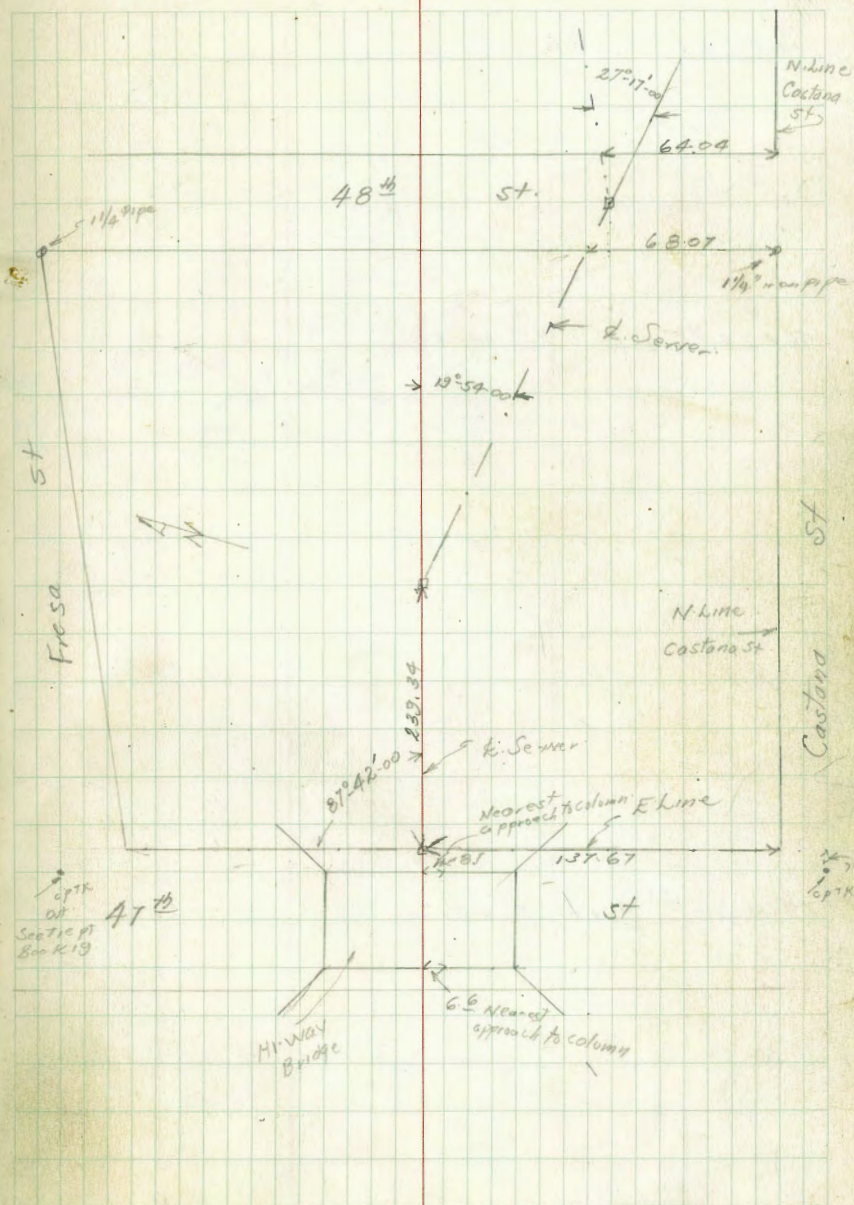 27°-17'-00
N. Line
Castana
St.
64.04
48th St.
1 1/4" Pipe
68.07
1 1/4" iron pipe
℄. Sewer.
19°-54-00
St
Fresa
N. Line
Castana St.
St
Castana
239.34
℄. Sewer
87°-42'-00
Nearest
approach to column
E. Line
137.67
47th St
Book 19
6.6 Nearest
approach to column
Hi-Way
Bridge